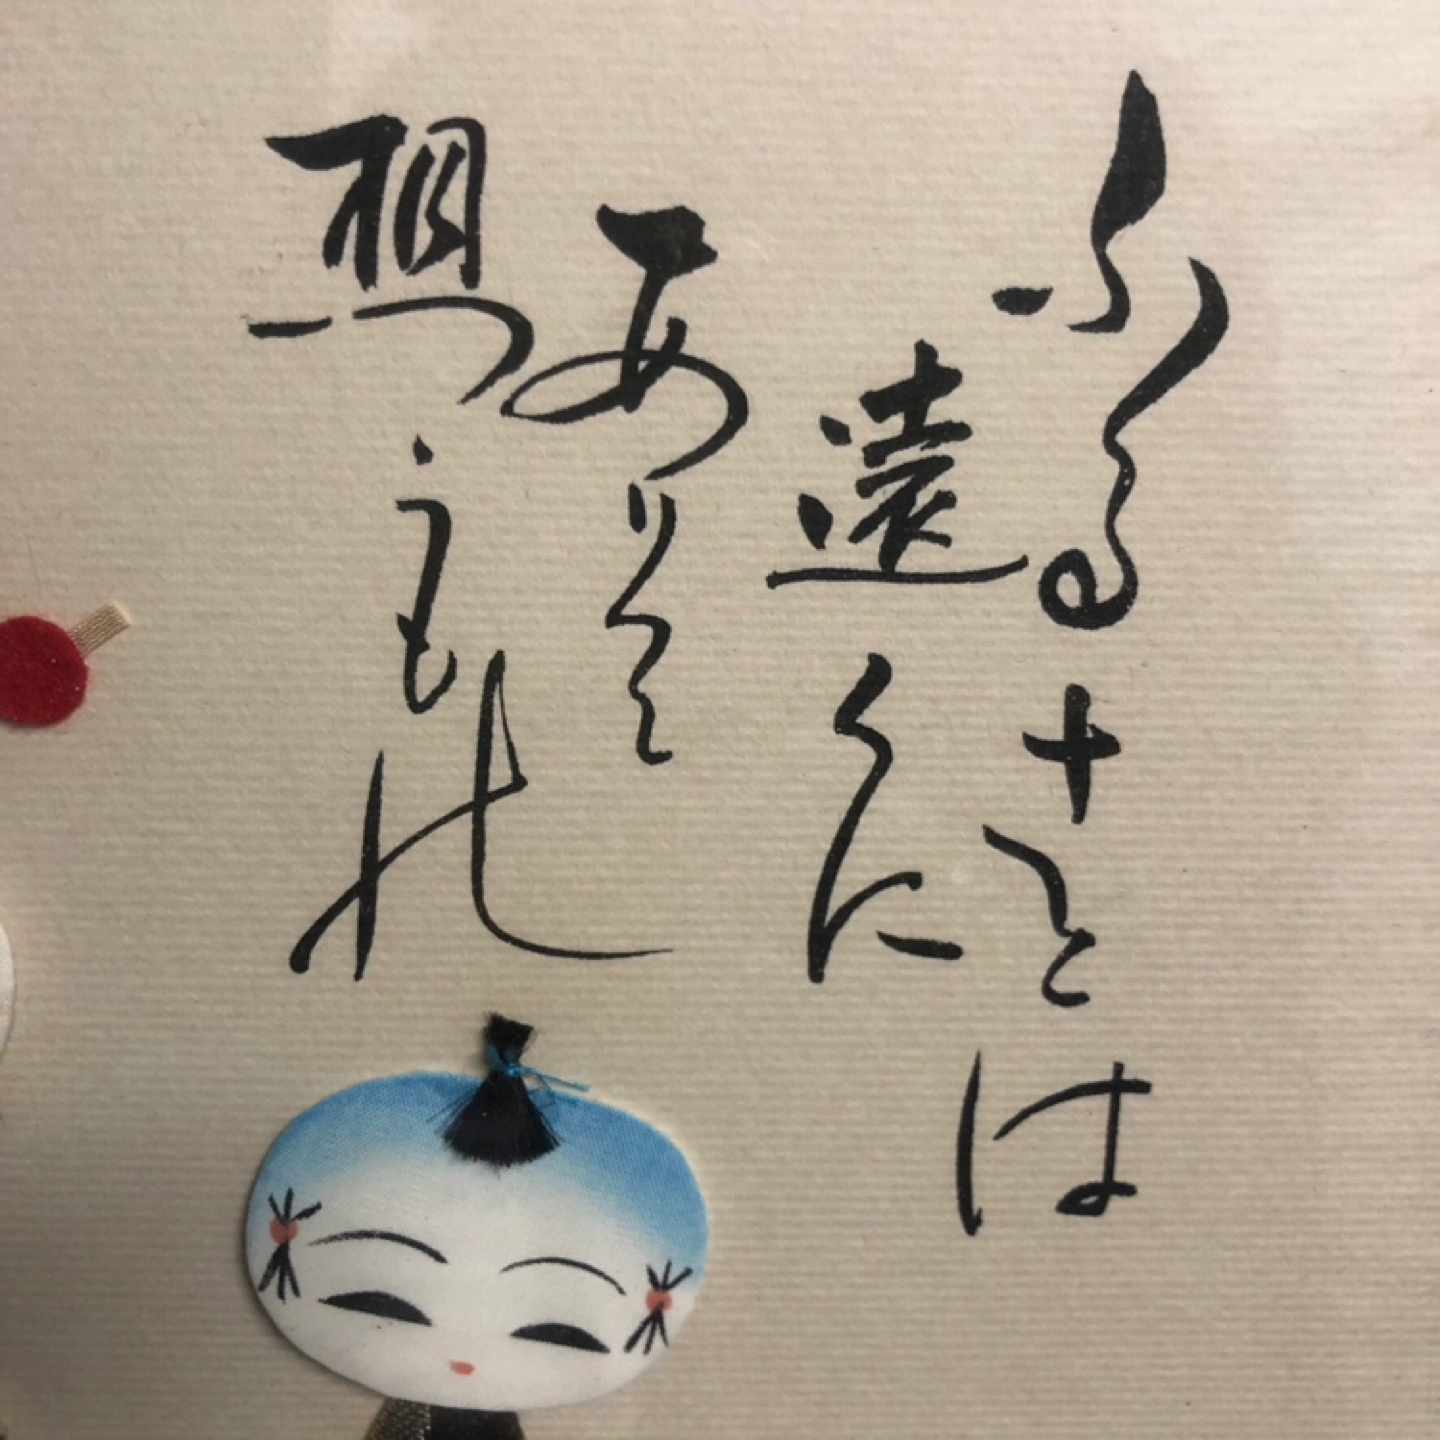 ふるさとは
遠くに
ありて
想うもの